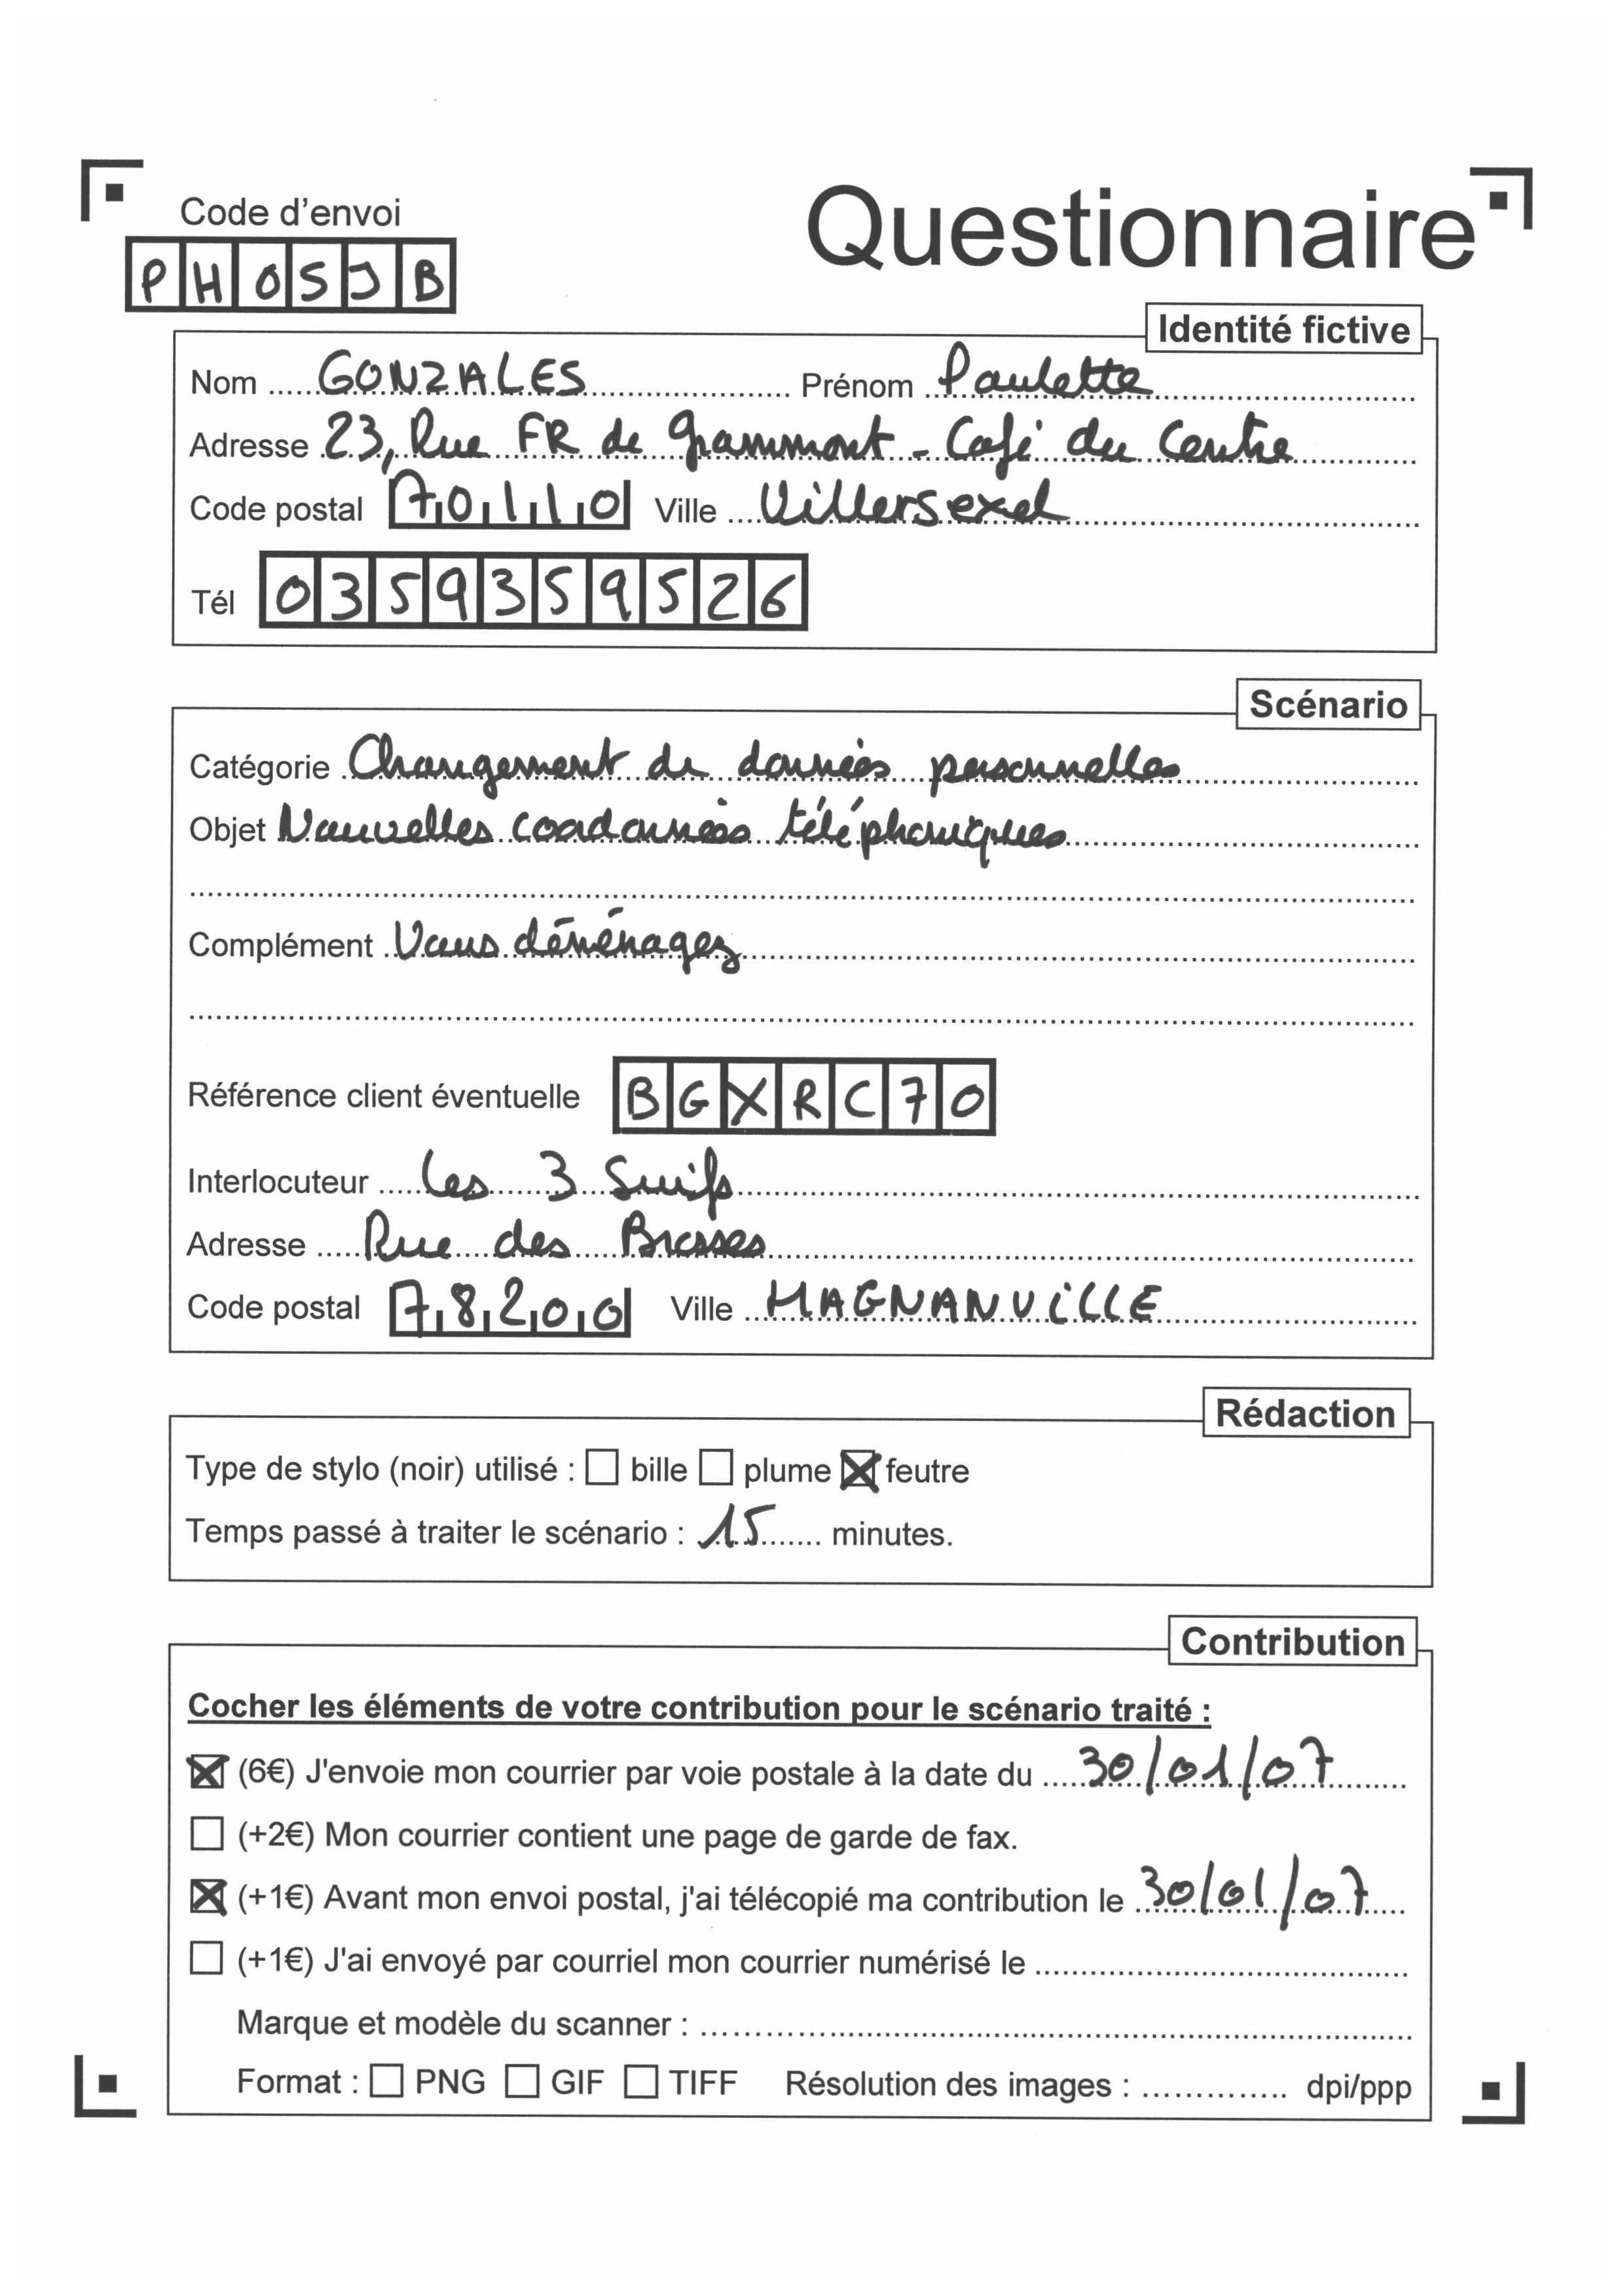 Code d'envoi
Questionnaire
PH0SJB
Identité fictive
Nom GONZALES Prénom Paulette
Adresse 23, Rue FR de Grammont - Café du Centre
Code postal 70110 Ville Villersexel
Tél 0359359526
Scénario
Catégorie Changement de données personnelles
Objet Nouvelles coordonnées téléphoniques
Complément Vous déménagez
Référence client éventuelle BGXRC70
Interlocuteur Les 3 Suifs
Adresse Rue des Brosses
Code postal 78200 Ville MAGNANVILLE
Rédaction
Type de stylo (noir) utilisé : ☐ bille ☐ plume ☒ feutre
Temps passé à traiter le scénario : 15 minutes.
Contribution
Cocher les éléments de votre contribution pour le scénario traité :
☒ (6€) J'envoie mon courrier par voie postale à la date du 30/01/07
☐ (+2€) Mon courrier contient une page de garde de fax.
☒ (+1€) Avant mon envoi postal, j'ai télécopié ma contribution le 30/01/07
☐ (+1€) J'ai envoyé par courriel mon courrier numérisé le
Marque et modèle du scanner :
Format : ☐ PNG ☐ GIF ☐ TIFF Résolution des images : dpi/ppp